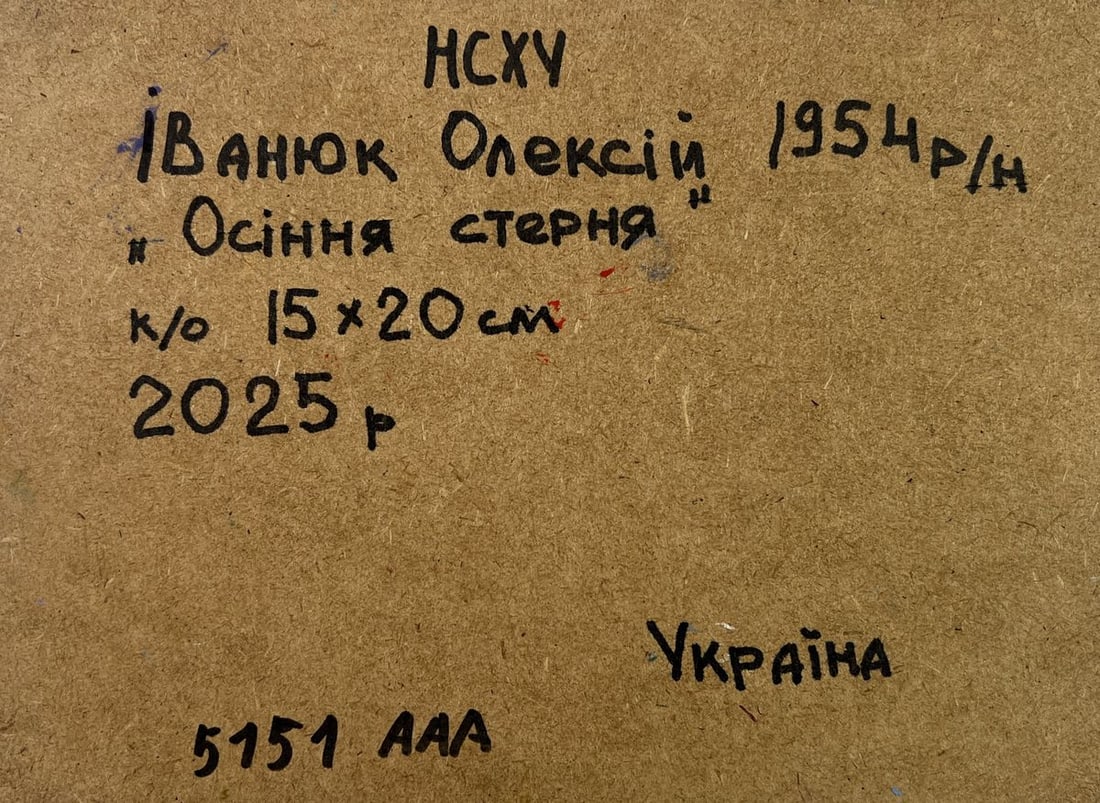 НСХУ
Іванюк Олексій 1954 р/н
„Осіння стерня"
к/о 15×20 см
2025 р
Україна
5151 ААА